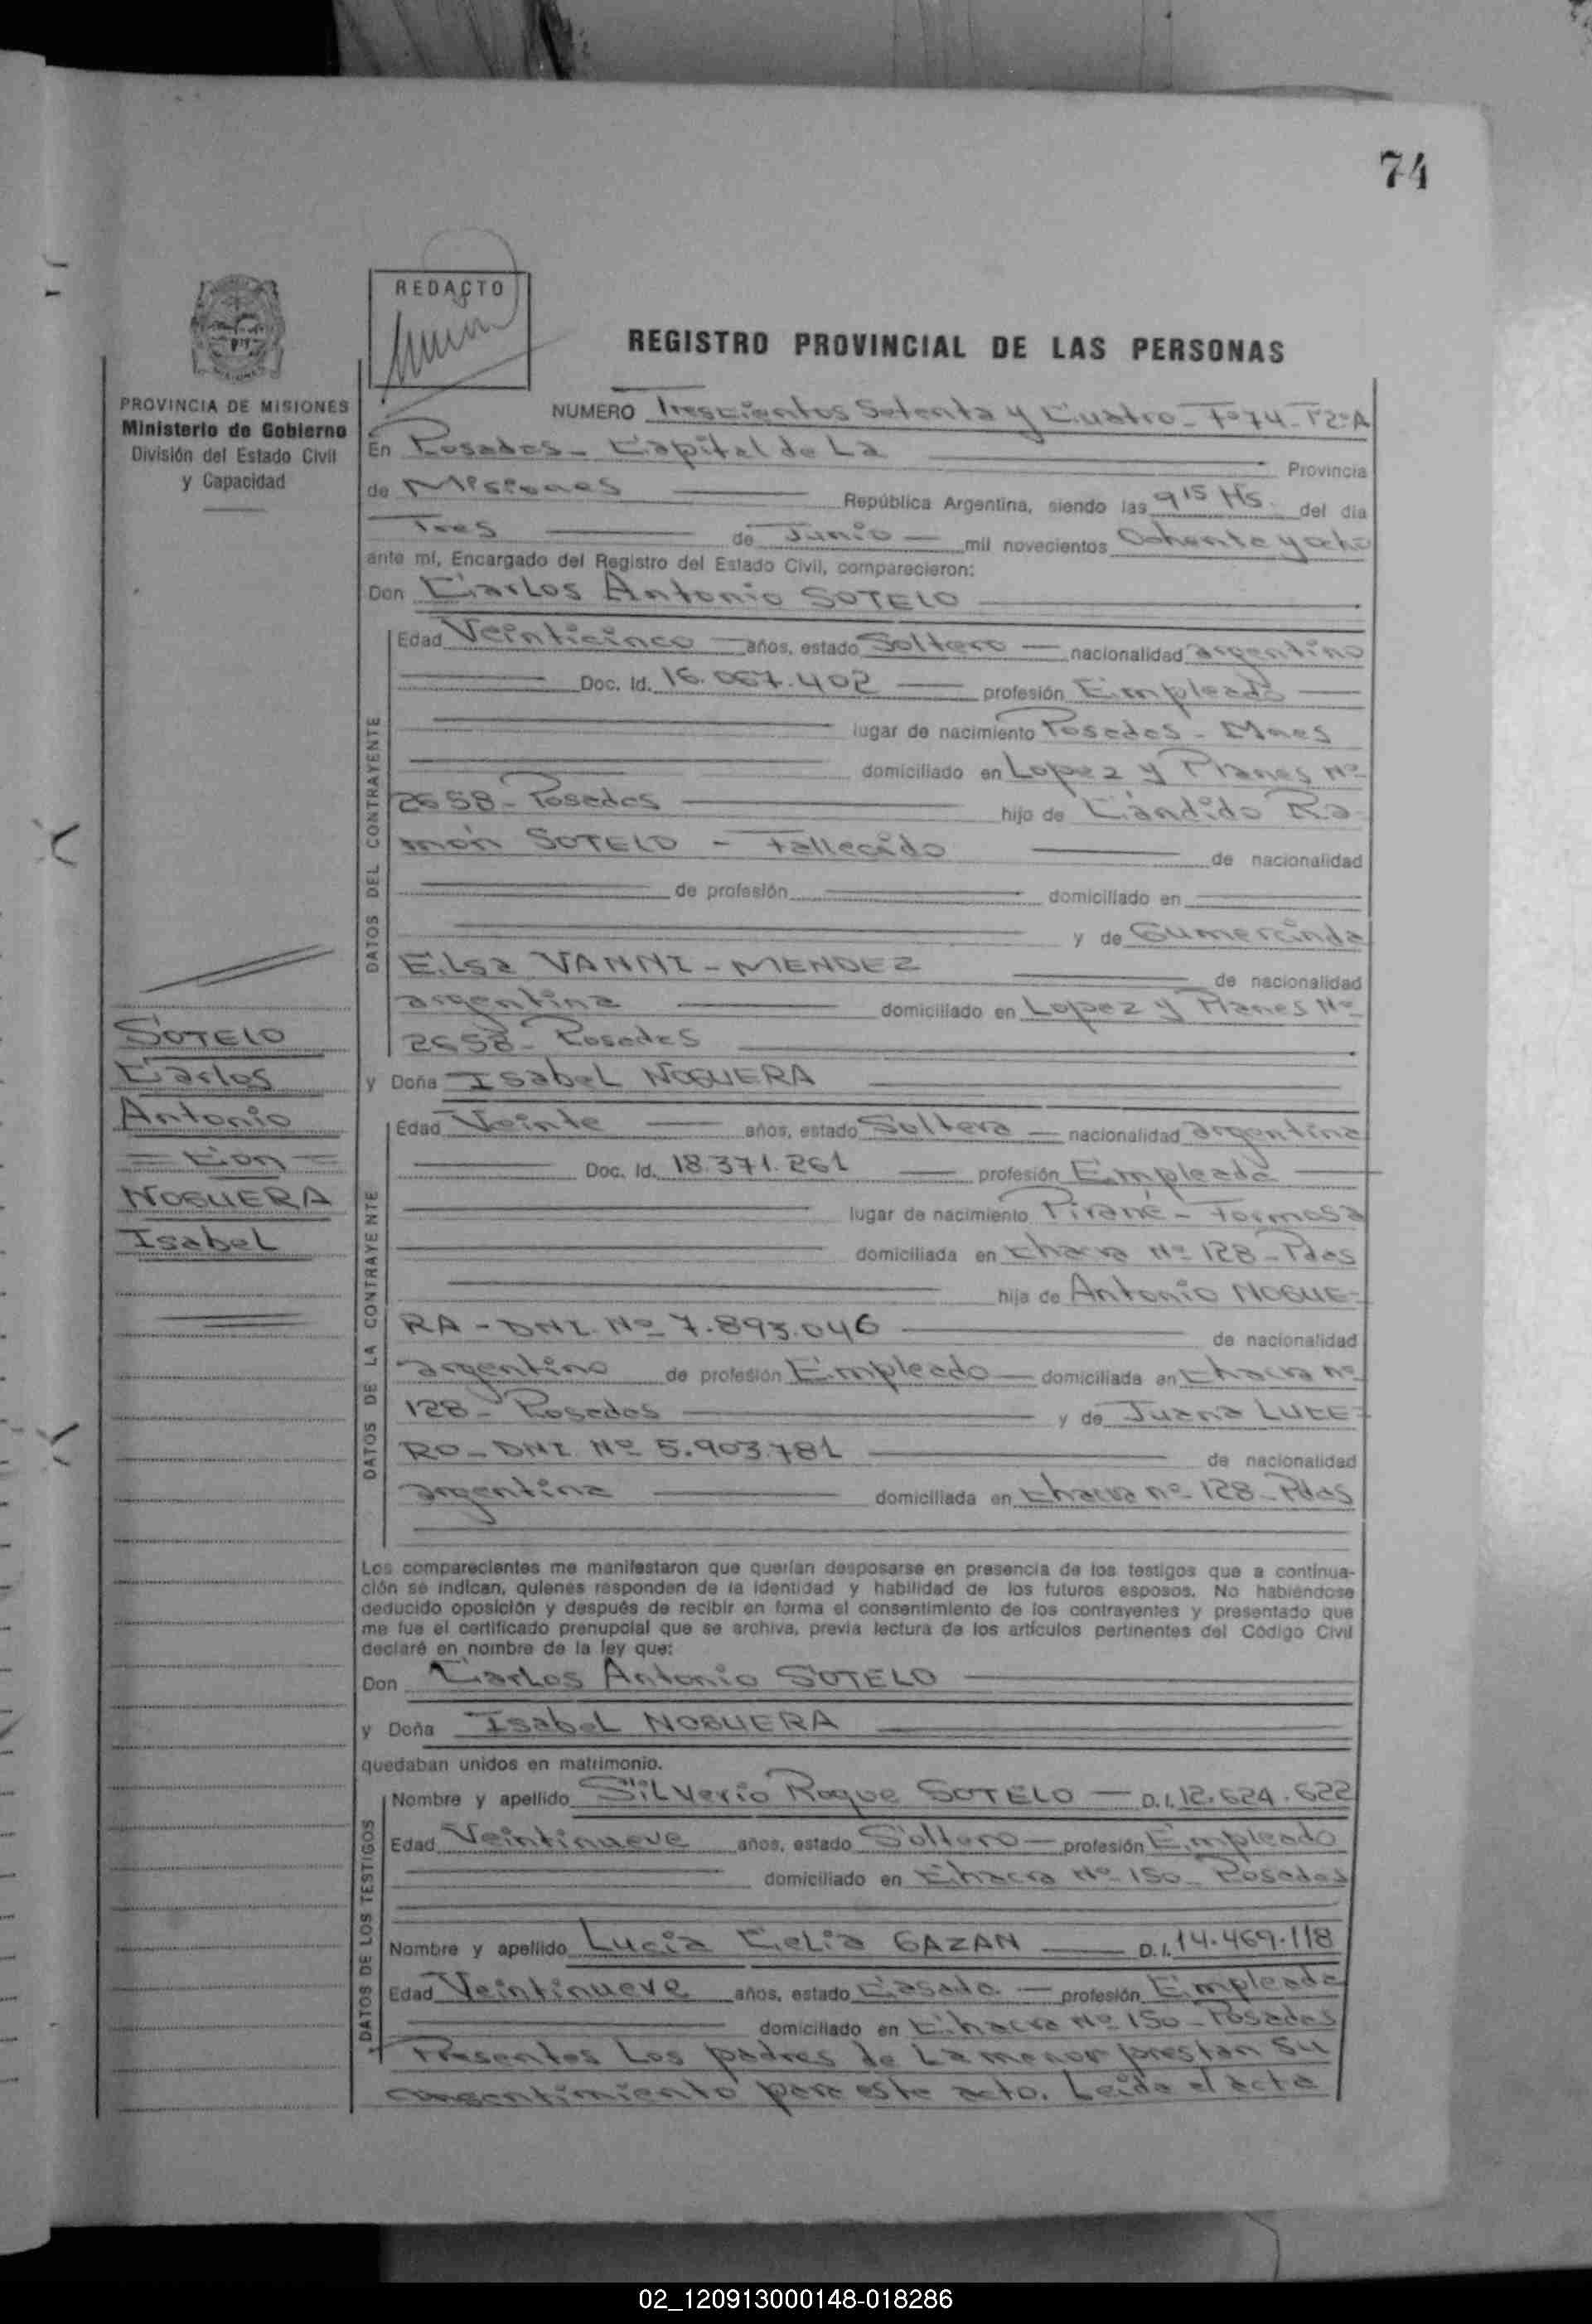 74
REDACTO
REGISTRO PROVINCIAL DE LAS PERSONAS
PROVINCIA DE MISIONES
Ministerio de Gobierno
División del Estado Civil
y Capacidad
NUMERO Trescientos Setenta y Cuatro - Fº 74 - Tº 2º A
En Posadas - Capital de La Provincia
de Misiones República Argentina, siendo las 9 15 Hs. del día
Tres de Junio mil novecientos Ochenta y ocho
ante mí, Encargado del Registro del Estado Civil, comparecieron:
Don Carlos Antonio SOTELO
DATOS DEL CONTRAYENTE
Edad Veinticinco años, estado Soltero nacionalidad argentino
Doc. Id. 16.067.402 profesión Empleado
lugar de nacimiento Posadas - Mnes
domiciliado en Lopez y Planes Nº
2658 - Posadas hijo de Cándido Ra-
món SOTELO - Fallecido de nacionalidad
de profesión domiciliado en
y de Gumercinda
Elsa VANNI - MENDEZ de nacionalidad
argentina domiciliado en Lopez y Planes Nº
2658 - Posadas
y Doña Isabel NOGUERA
DATOS DE LA CONTRAYENTE
Edad Veinte años, estado Soltera nacionalidad argentina
Doc. Id. 18.371.261 profesión Empleada
lugar de nacimiento Pirané - Formosa
domiciliada en Chacra Nº 128 - Pdas
hija de Antonio NOGUE-
RA - DNI. Nº 7.893.046 de nacionalidad
argentino de profesión Empleado domiciliada en Chacra nº
128 - Posadas y de Juana LUCE-
RO - DNI. Nº 5.903.781 de nacionalidad
argentina domiciliada en Chacra nº 128 - Pdas
SOTELO
Carlos
Antonio
= Con =
NOGUERA
Isabel
Los comparecientes me manifestaron que querían desposarse en presencia de los testigos que a continua-
ción se indican, quienes responden de la identidad y habilidad de los futuros esposos. No habiéndose
deducido oposición y después de recibir en forma el consentimiento de los contrayentes y presentado que
me fue el certificado prenupcial que se archiva, previa lectura de los artículos pertinentes del Código Civil
declaré en nombre de la ley que:
Don Carlos Antonio SOTELO
y Doña Isabel NOGUERA
quedaban unidos en matrimonio.
DATOS DE LOS TESTIGOS
Nombre y apellido Silverio Roque SOTELO D.I. 12.624.622
Edad Veintinueve años, estado Soltero profesión Empleado
domiciliado en Chacra Nº 150 - Posadas
Nombre y apellido Lucia Celia GAZAN D.I. 14.469.118
Edad Veintinueve años, estado Casada profesión Empleada
domiciliado en Chacra Nº 150 - Posadas
Presentes Los padres de La menor prestan su
consentimiento para este acto. Leida el acta
02_120913000148-018286